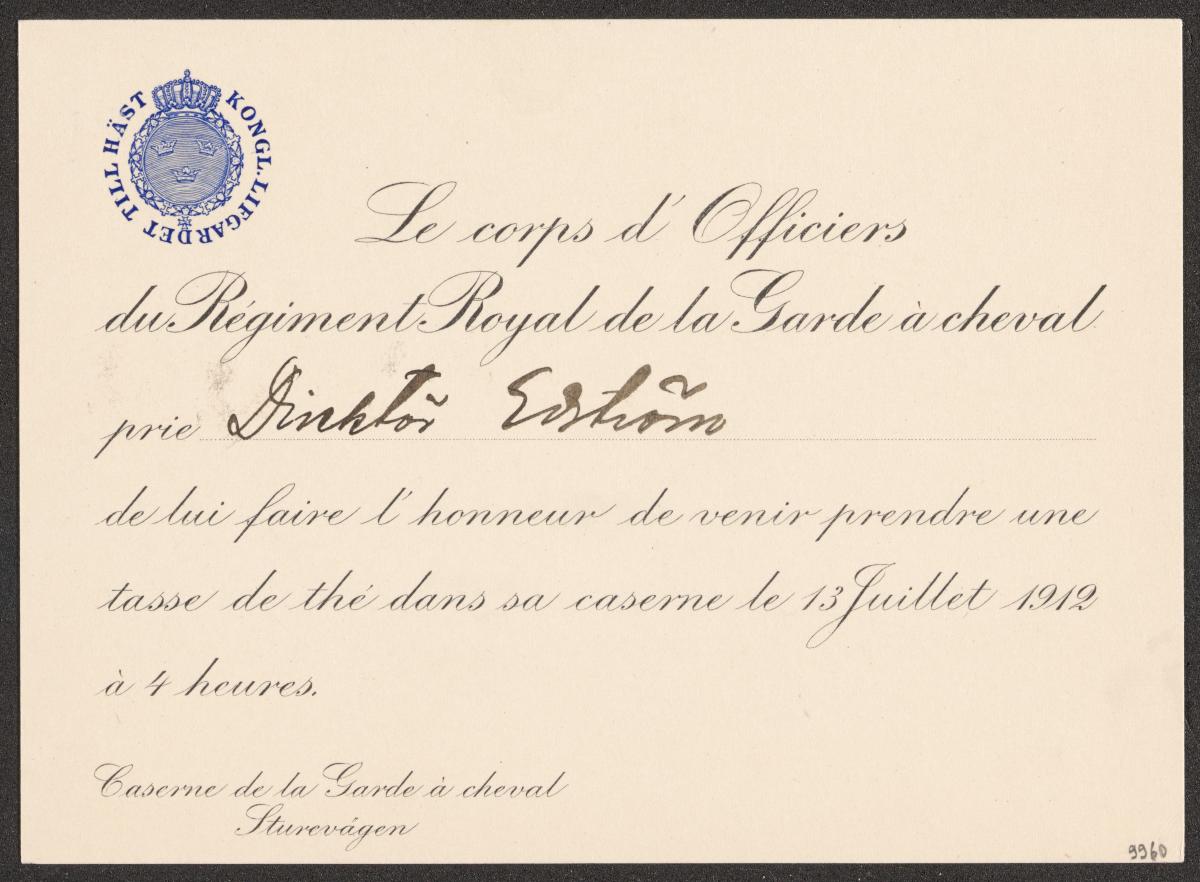 KONGL. LIFGARDET TILL HÄST
Le corps d'Officiers
du Régiment Royal de la Garde à cheval
prie Direktör Edström
de lui faire l'honneur de venir prendre une
tasse de thé dans sa caserne le 13 Juillet 1912
à 4 heures.
Caserne de la Garde à cheval
Sturevägen
9960